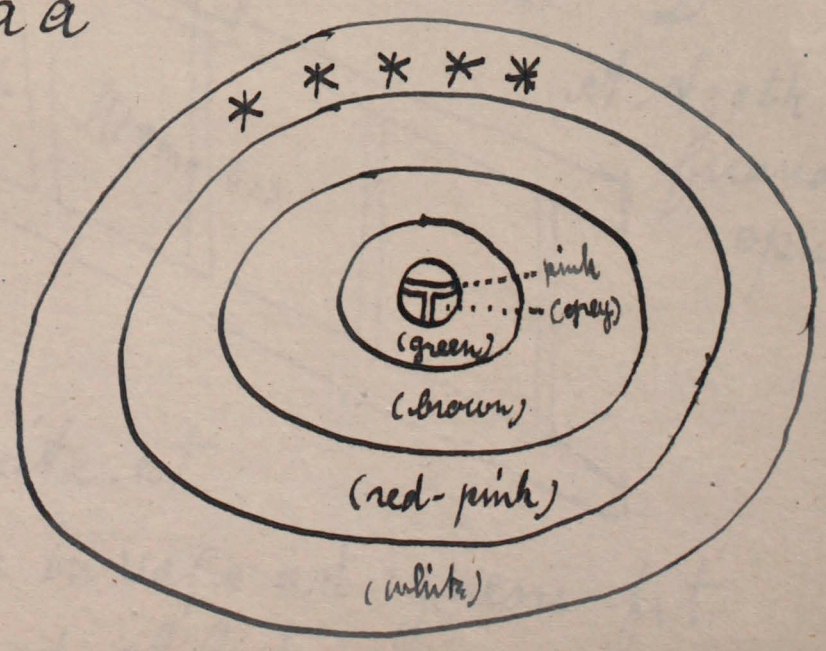 aa
pink
(grey)
(green)
(brown)
(red-pink)
(white)